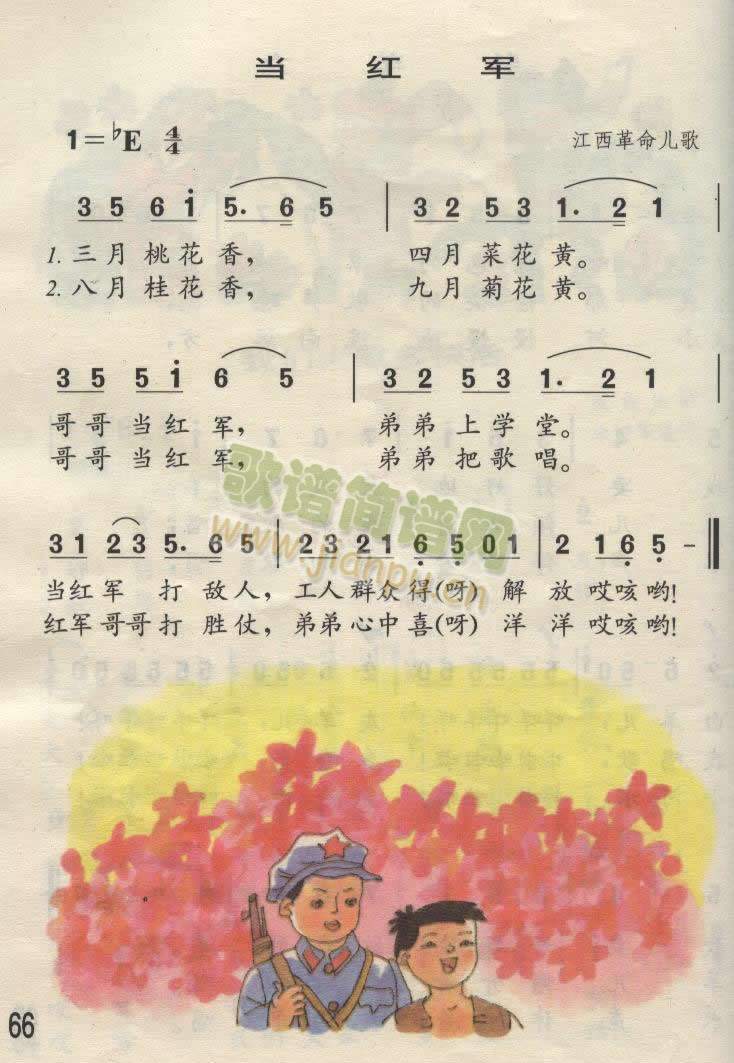 当 红 军
1=♭E 4/4
江西革命儿歌
3 5 6 i 5. 6 5 | 3 2 5 3 1. 2 1 |
1. 三月桃花香， 四月菜花黄。
2. 八月桂花香， 九月菊花黄。
3 5 5 i 6 5 | 3 2 5 3 1. 2 1
哥哥当红军， 弟弟上学堂。
哥哥当红军， 弟弟把歌唱。
31 23 5. 6 5 | 23 21 6. 5 01 | 2 16 5 - ‖
当红军 打敌人，工人群众得(呀) 解 放 哎咳哟!
红军哥哥打胜仗，弟弟心中喜(呀) 洋 洋 哎咳哟!
歌谱简谱网
www.jianpu.cn
66